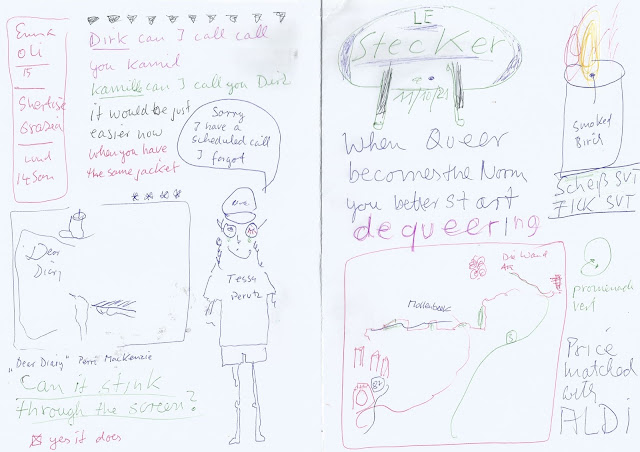 Dirk can I call call
you Kamil
Kamil can I call you Dirk
it would be just
easier now
when you have
the same jacket
Oli
15
Lund
14 Sem
Sorry
I have a
scheduled call
I forgot
Tessa
Perutz
Dear
Diary
"Dear Diary" Perri MacKenzie
Can it stink
through the screen?
yes it does
LE
Stecker
11/10/21
When Queer
becomes the Norm
you better start
dequeering
smoked
Bird
Scheiß SVT
FICK SVT
Molenbeek
promenade
vert
Price
matched
with
ALDi